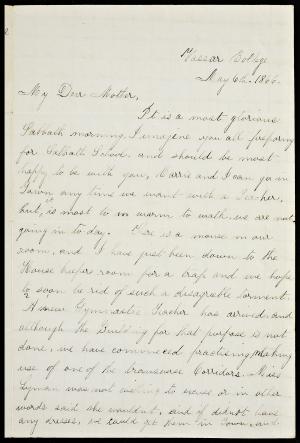 Vassar College
May 6th. 1866.
My Dear Mother,
It is a most glorious
Sabbath morning. I imagine you all preparing
for Sabbath School, and should be most
happy to be with you, Carrie and I can go in
Town any time we want with a Teacher,
but, it is most to warm to walk, we are not
going in to day. There is a mouse in our
room, and I have just been down to the
House keepers room for a trap and we hope
to soon be rid of such a disagreeable torment.
A new Gymnastic Teacher has arrived, and
although the Building for that purpose is not
done, we have commenced practising, making
use of one of the transverse Corridors. Miss
Lyman was not willing to excuse or in other
words said she wouldn't, and if I did not have
any dresses, we could get them in Town, and